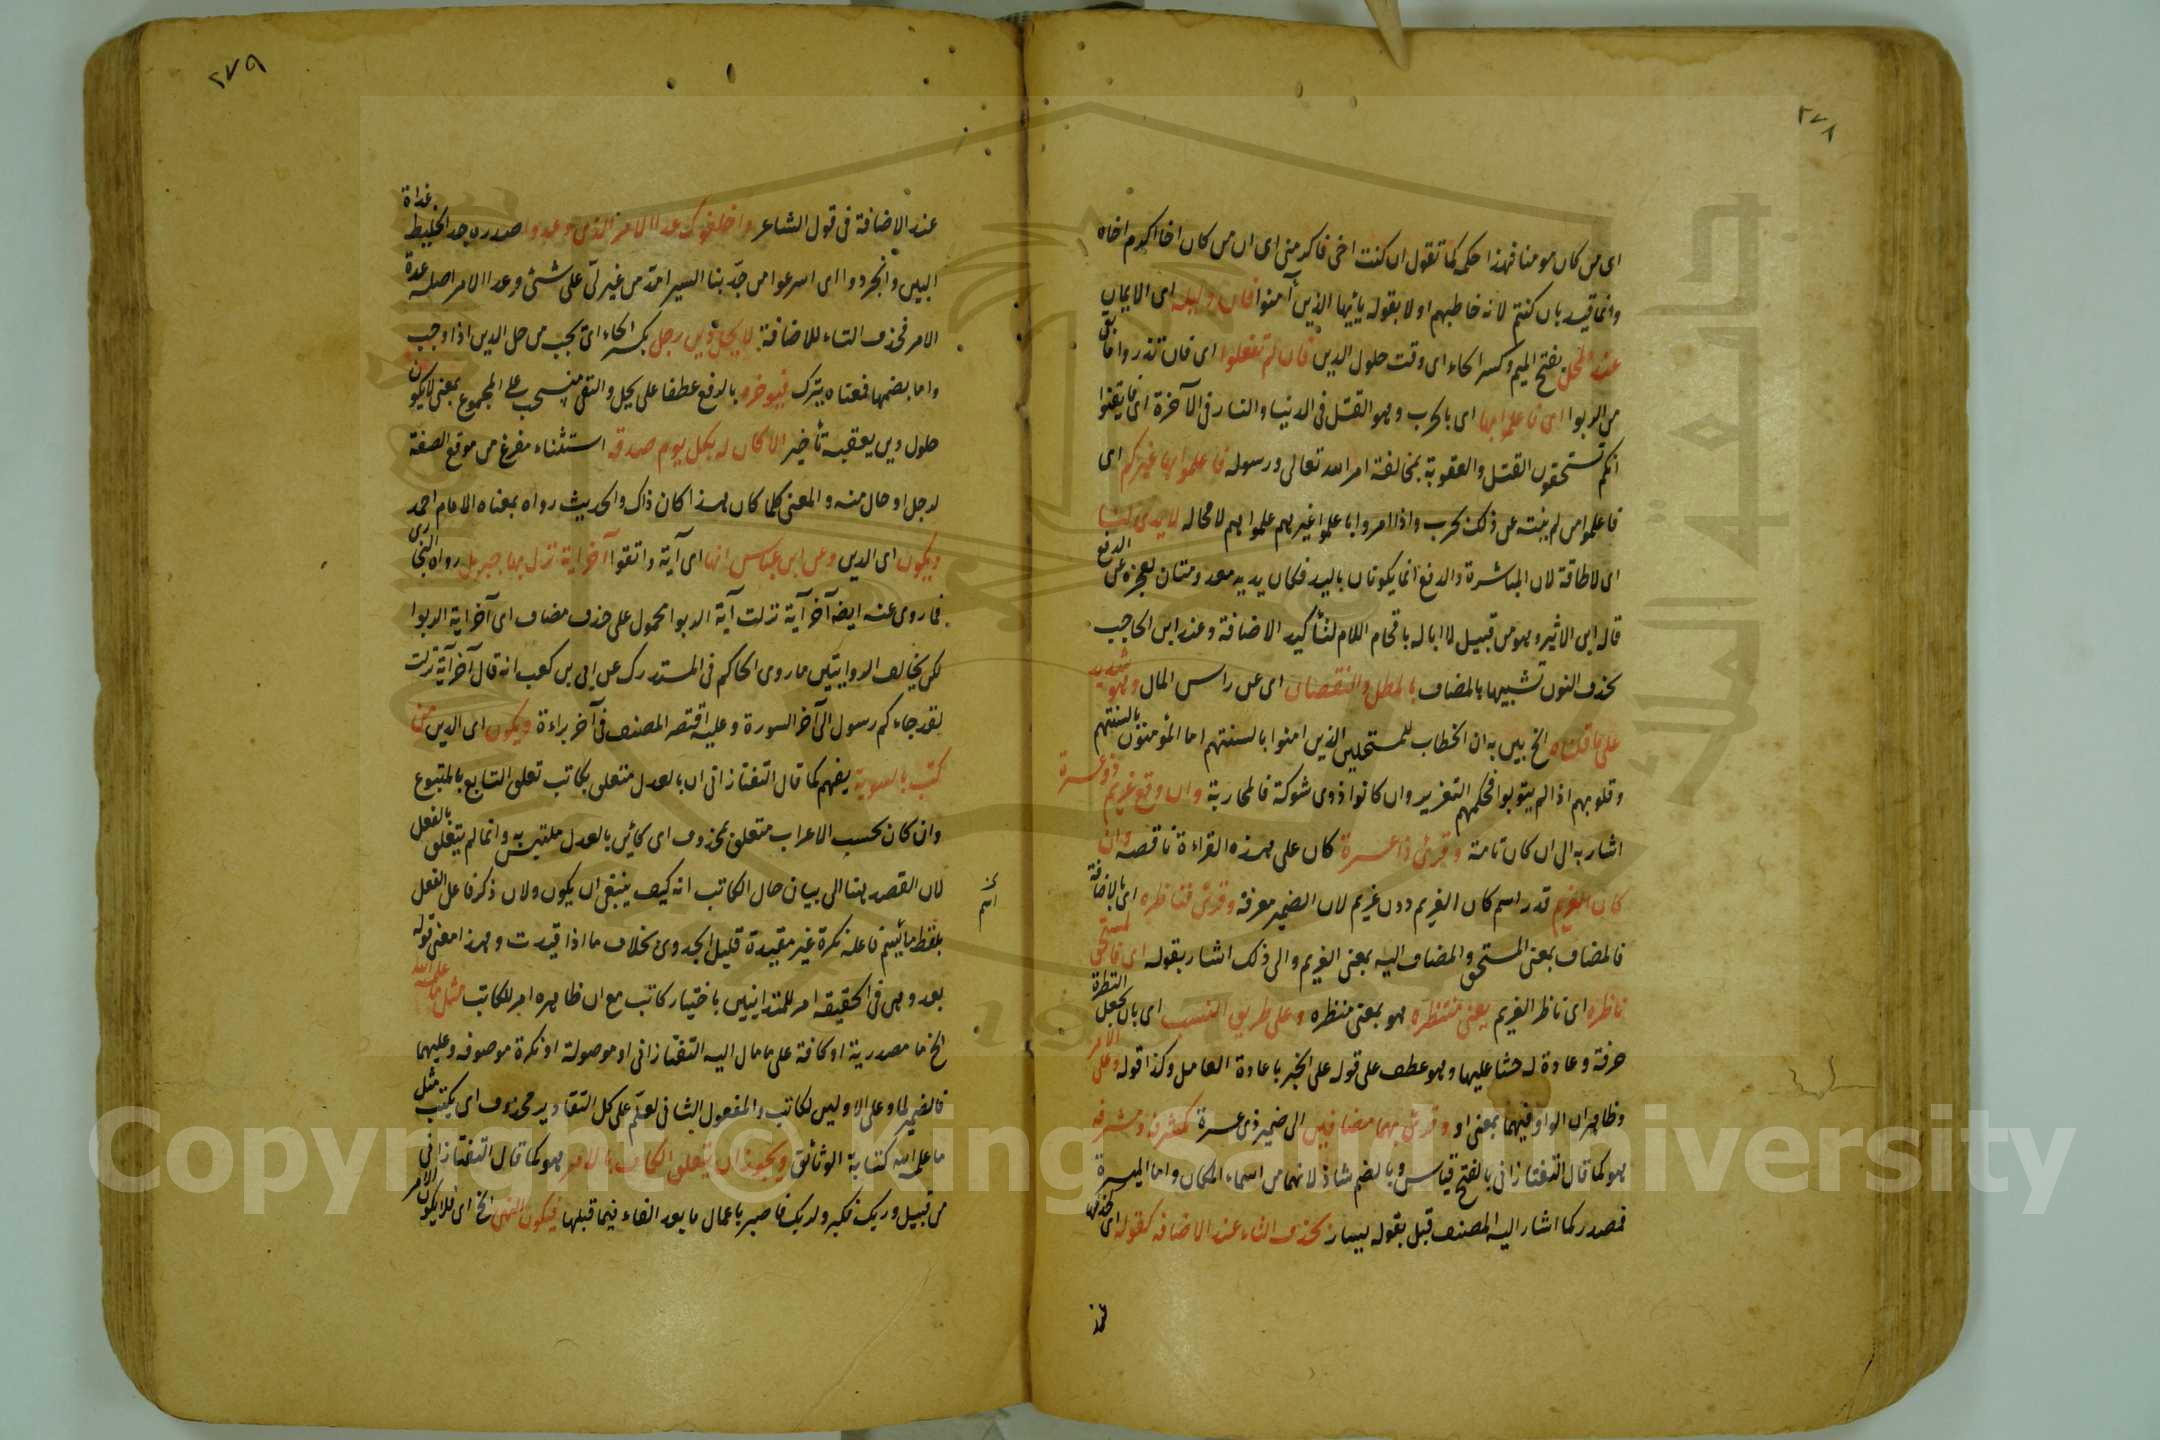 ٢٧٨
اى من كان مومنا فهذا حكمه كما تقول ان كنت اخى فاكرمنى اى ان من كان اخا اكرم اخاه
وانما قيد بان كنتم لانه خاطبهم اولا بقوله يايها الذين آمنوا فان دليله اى الايمان
عند المحل بفتح الميم وكسر الحاء اى وقت حلول الدين فان لم تفعلوا اى فان تذروا ما بقى
من الربوا اى فاعلموا بها اى بالحرب وهو القتل فى الدنيا والنار فى الآخرة اى فايقنوا
انكم تستحقون القتل والعقوبة بمخالفة امر الله تعالى ورسوله فاعلموا بها غيركم اى
فاعلموا من لم ينته عن ذلك بحرب واذا امروا باعلموا غيرهم علموا هم لا محاله لا يدى لنا
اى لا طاقة لان المباشرة والدفع انما يكونان باليد فكان يديه معدومتان لعجزه عن الدفع
قاله ابن الاثير وهو من قبيل لا اباله باقحام اللام لتأكيد الاضافة وعند ابن الحاجب
بحذف النون تشبيها بالمضاف بالمطل والنقصان اى عن راس المال وهو شديد
على ما قلناه الخ بين به ان الخطاب للمستحلين الذين امنوا بالسنتهم اما المؤمنون بالسنتهم
وقلوبهم اذا لم يتوبوا فحكمهم التعزير وان كانوا ذوى شوكة فالمحاربة وان وقع غريم ذو عسرة
اشار به الى ان كان تامة وقرئ ذا عسرة كان على هذه القراءة ناقصه وان
كان الغريم قدر اسم كان الغريم دون غريم لان الضمير معرفة وقرئ فناظره اى بالاضافة
فالمضاف بمعنى المستحق والمضاف اليه بمعنى الغريم والى ذلك اشار بقوله اى فالمستحق
ناظره اى ناظر الغريم يعنى منتظره هو بمعنى منتظره وعلى طريق النسب اى بان يجعل النظرة
حرفة وعادة له حثا عليها وهو عطف على قوله على الخبر باعادة العامل وكذا قوله وعلى الامر
وظاهر ان الواو فيهما بمعنى او وقرئ بهما مضافين الى ضمير ذى عسرة كمشرقه ومشرقه
هو كما قال التفتازانى بالفتح قياس وبالضم شاذ لانهما من اسماء المكان واما الميسرة
فمصدر كما اشار اليه المصنف قبل بقوله يسار بحذف التاء عند الاضافه كقوله اى بحذفها
٢٧٩
عند الاضافة فى قول الشاعر واخلفوك عدا الامر الذى وعدوا صدره جد الخليط غداة
البين وانجردوا اى اسرعوا من جدّ بنا السير امتد من غير لىّ على شئ وعدا الامر اصله عدة
الامر فحذف التاء للاضافة لا يحل دين رجل بكسر الحاء اى يجب من حل الدين اذا وجب
واما بضمها فمعناه ينزل فيوخره بالرفع عطفا على يحل والنفى منسحب على المجموع بمعنى لا يكون
حلول دين يعقبه تأخير الا كان له بكل يوم صدقه استثناء مفرغ من موقع الصفة
لرجل او حال منه والمعنى كلما كان هذا كان ذاك والحديث رواه بمعناه الامام احمد
ويكون اى الدين وعن ابن عباس انها اى آية واتقوا آخر اية نزل بها جبريل رواه البخارى
فما روى عنه ايضا آخر آية نزلت آية الربوا محمول على حذف مضاف اى آخر اية الربوا
لكن يخالف الروايتين ما روى الحاكم فى المستدرك عن ابى بن كعب انه قال آخر آية نزلت
لقد جاءكم رسول الى آخر السورة وعليه اقتصر المصنف فى آخر براءة ويكون اى الدين من
كتب بالسوية يفهم كما قال التفتازانى ان بالعدل متعلق بكاتب تعلق التابع بالمتبوع
وان كان بحسب الاعراب متعلق بمحذوف اى كائن بالعدل ملتبس به وانما لم يتعلق بالفعل
لان القصد هنا الى بيان حال الكاتب انه كيف ينبغى ان يكون ولان ذكر فاعل الفعل
بلفظ فاعله نكرة غير مقيدة قليل الجدوى بخلاف ما اذا قيدت وهذا معنى قوله
بعد وهى فى الحقيقه امر للمتداينين باختيار كاتب مع ان ظاهره امر للكاتب مثل ما علمه الله
الخ ما مصدرية او كافة على ما مال اليه التفتازانى او موصولة او نكرة موصوفه وعليهما
فالضمير لما وعلى الاولين لكاتب والمفعول الثانى لعلّم على كل التقادير محذوف اى يكتب مثل
ما علمه الله كتابة الوثائق ويجوز ان يتعلق الكاف بالامر هو كما قال التفتازانى
من قبيل وربك فكبر ولربك فاصبر باعمال ما بعد الفاء فيما قبلها فيكون النهى الخ اى لئلا يكون الامر
Copyright © King Saud University